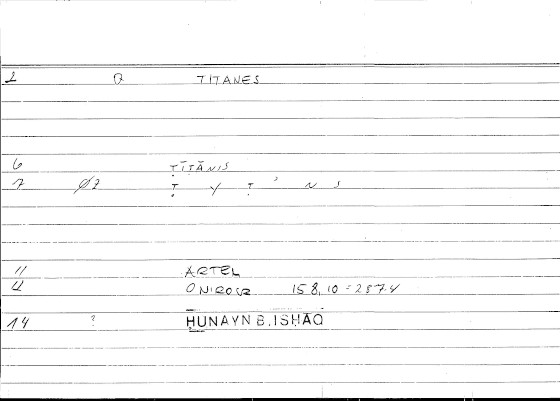 2 Q TITANES
6 ṬĪṬĀNIS
7 Ø7 Ṭ Y Ṭ ' N S
11 ARTEL
12 ONIROCR 158,10 = 287.4
14 ? ḤUNAYN B. ISḤĀQ